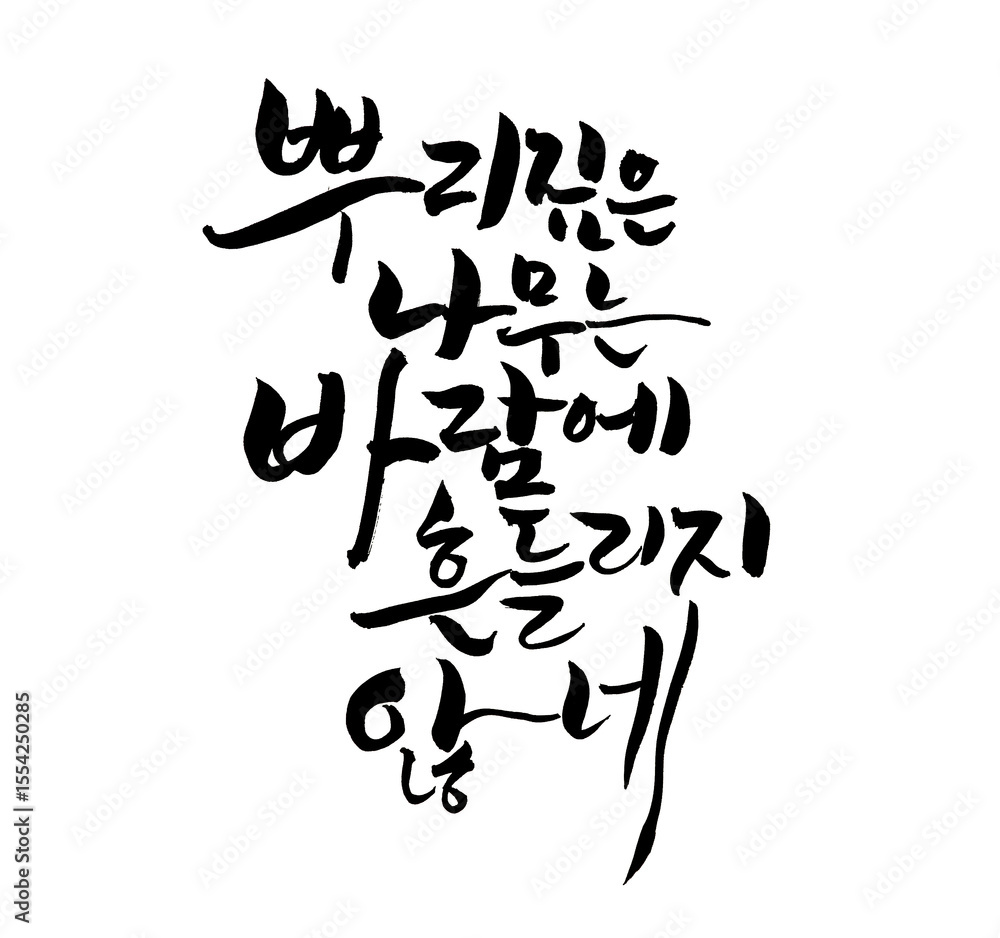 뿌리깊은
나무는
바람에
흔들리지
않네
Adobe Stock | #1554250285